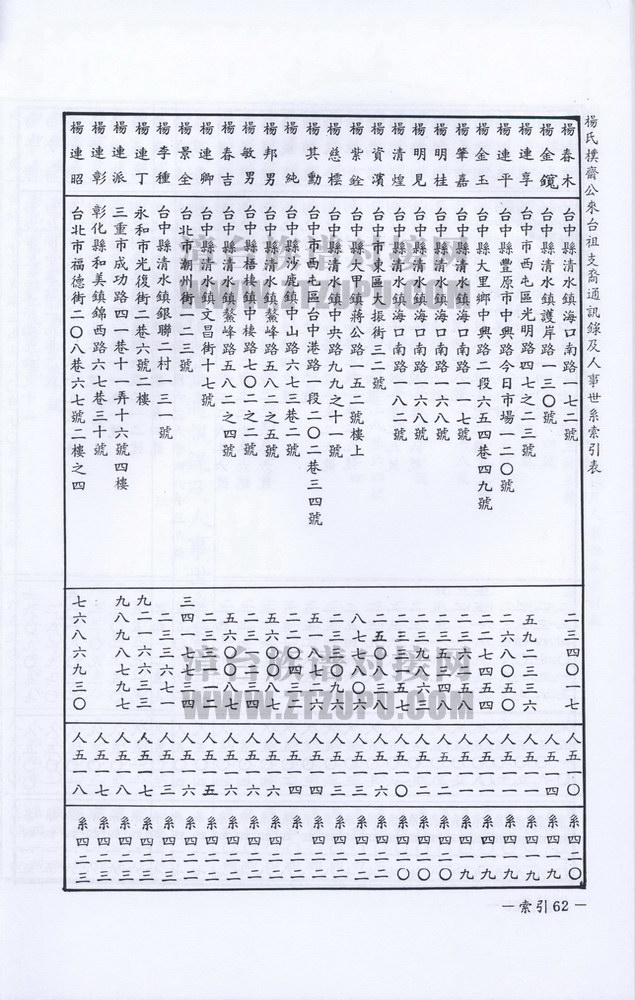 楊氏樸齋公來台祖支裔通訊錄及人事世系索引表
楊春木 台中縣清水鎮海口南路一七二號 二三四〇一七 人五一〇 系四二〇
楊金鎲 台中縣清水鎮護岸路一三〇號 人五一四 系四一九
楊連享 台中市西屯區光明路四七之二三號 五九二三三六 人五一一 系四一九
楊連平 台中縣豐原市中興路今日市場一二〇號 二六八〇五〇 人五一一 系四一九
楊金玉 台中縣大里鄉中興路二段六五四巷四九號 二二七四五四 人五一一 系四一九
楊肇嘉 台中縣清水鎮海口南路一一七號 人五一一 系四一九
楊明桂 台中縣清水鎮海口南路一六八號 人五一二 系四二〇
楊明見 台中縣清水鎮海口南路一六八號 人五一〇 系四二〇
楊清煌 台中縣清水鎮海口南路一八二號 人五一〇 系四二〇
楊資濱 台中市東區大振街三二號 人五一六 系四二一
楊紫銓 台中縣大里鎮蔣公路一五二號樓上 人五一三 系四二二
楊慈櫻 台中縣清水鎮中央路九九之十一號 人五一三 系四二二
楊其勳 台中市西屯區台中港路一段二〇二巷三四號 人五一四 系四二二
楊純 台中縣沙鹿鎮中山路六七三巷二號 系四二二
楊邦男 台中縣清水鎮鰲峰路五八二之五號 人五一六 系四二二
楊敏男 台中縣梧棲鎮中棲路七〇二之二號 人五一六 系四二二
楊春吉 台中縣清水鎮鰲峰路五八二之四號 人五一六 系四二二
楊連卿 台中縣清水鎮文昌街十七號 系四二二
楊景全 台北市潮州街一二三號 三四一七七三四 人五一六 系四二二
楊李種 台中縣清水鎮銀聯二村一三一號 二三三六七一 人五一三 系四二三
楊連丁 永和市光復街二巷六號二樓 九二一六六三三 人五一七 系四二三
楊連派 三重市成功路四一巷十一弄十六號四樓 九八九八七九七 人五一八 系四二三
楊連彰 彰化縣和美鎮錦西路六七巷三十號 人五一七 系四二三
楊連昭 台北市福德街二〇八巷六七號二樓之四 七六八六九三〇 人五一八 系四二三
— 索引 62 —
漳台族谱对接网
WWW.ZTZUPU.COM
漳台族谱对接网
WWW.ZTZUPU.COM